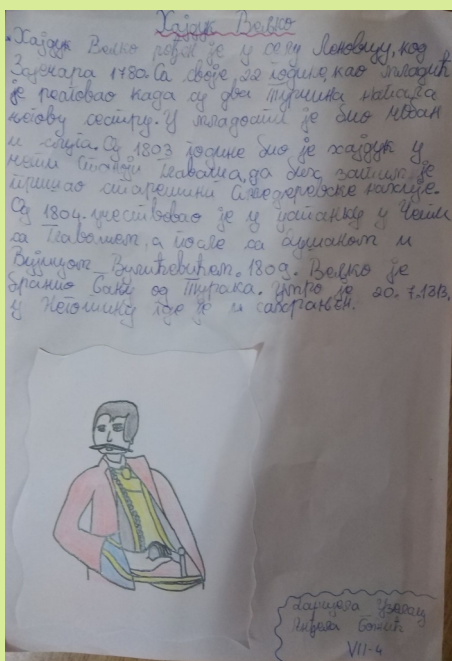 Хајдук Вељко
Хајдук Вељко рођен је у селу Леновцу, код
Зајечара 1780. Са своје 22 године, као младић
је реаговао када су два Турчина напала
његову сестру. У младости је био чобан
и слуга. Од 1803 године био је хајдук у
чети Станоја Главаша, да би, затим, је
пришао старешини Смедеревске нахије.
Од 1804. учествовао је у устанку у чети
са Главашем, а после са Душаном и
Вујицом Вулићевићем. 1809. Вељко је
бранио Бању од Турака. Умро је 20.7.1813.
у Неготину где је и сахрањен.
Узелац
Анђела Божић
VII-4